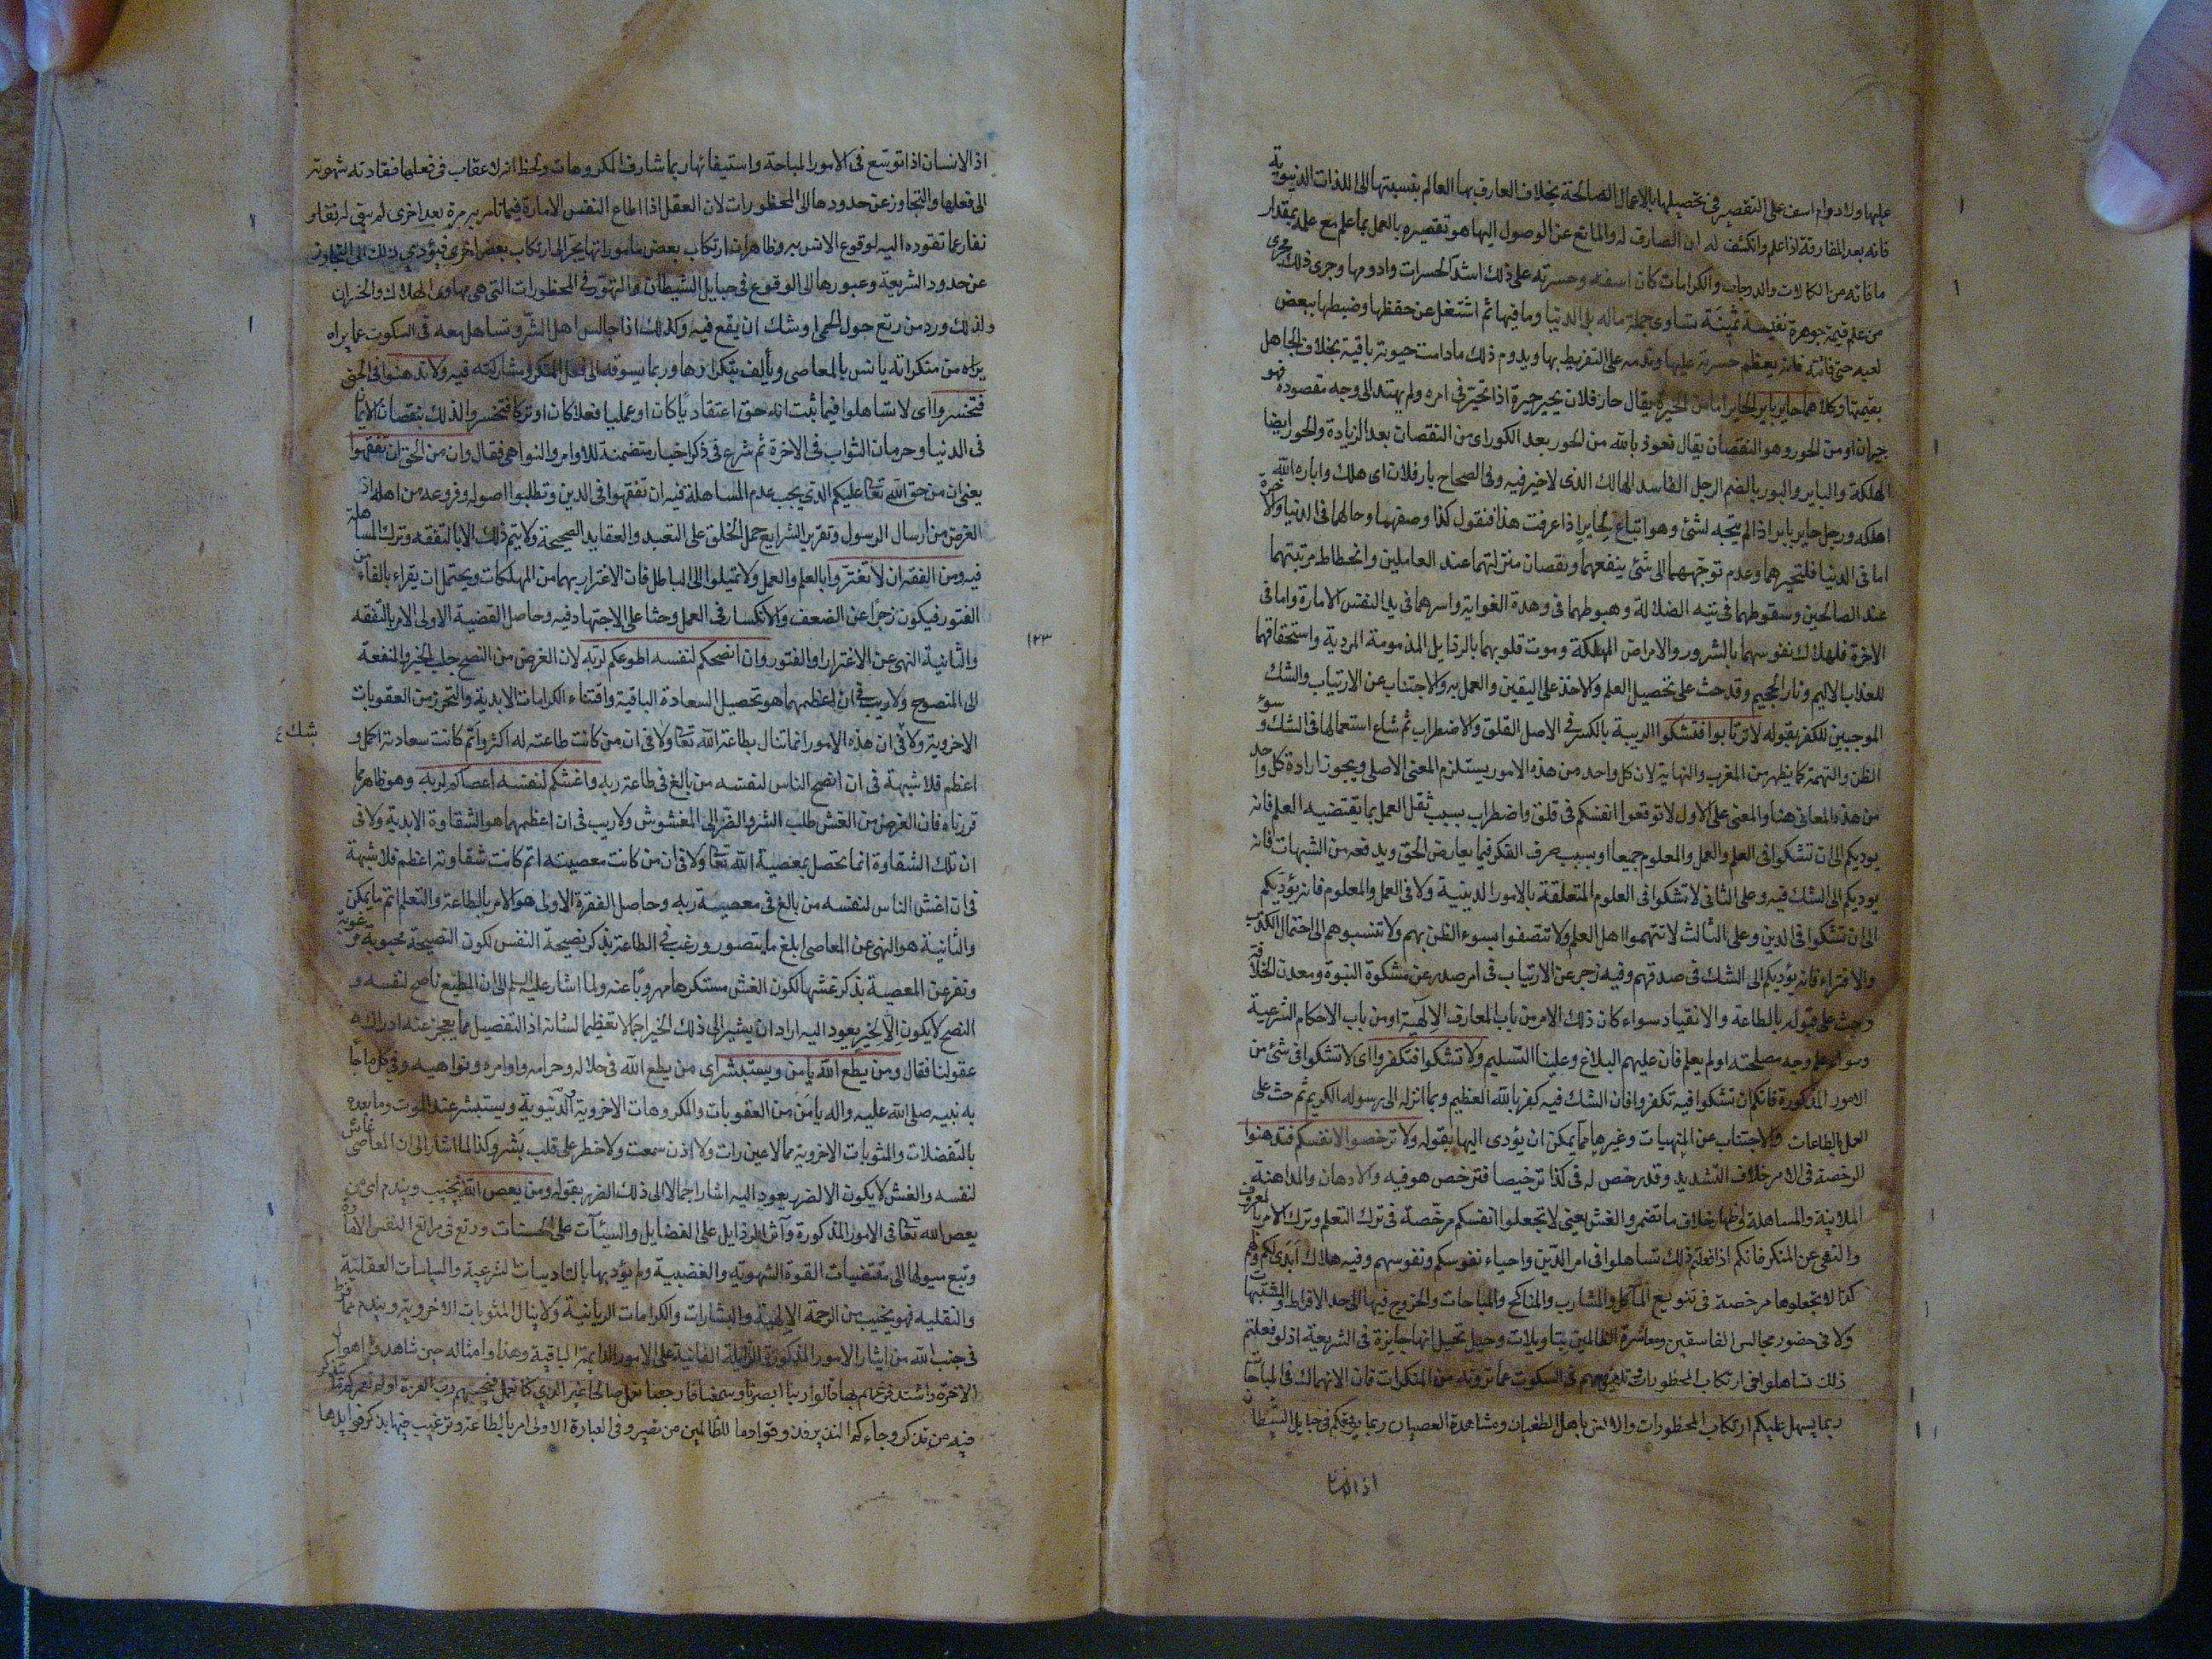 عليها ولا دوام اسف على التقصير في تحصيلها بالاعمال الصالحة بخلاف العارف بها العالم بنسبتها الى اللذات الدنيوية
فانه بعد المفارقة اذا علم وانكشف له ان الصارف له والمانع عن الوصول اليها هو تقصيره بالعمل بما علم مع علمه بمقدار
ما فاته من الكمالات والدرجات والكرامات كان اسفه وحسرته على ذلك اشد الحسرات وادومها وجرى ذلك مجرى
من علم قيمة جوهرة نفيسة ثمينة تساوى جملة ماله بل الدنيا وما فيها ثم اشتغل عن حفظها وضبطها ببعض
لعبه حتى فاتته فانه يعظم حسرته عليها وندمه على التفريط بها ويدوم ذلك مادامت حيوته باقية بخلاف الجاهل
بقيمتها وكلاهما حاير باير الحاير اما من الحيرة يقال حار فلان يحير حيرة اذا تحير في امره ولم يهتد الى وجه مقصوده فهو
حيران او من الحور وهو النقصان يقال نعوذ بالله من الحور بعد الكور اى من النقصان بعد الزيادة والحور ايضا
الهلكة والباير والبور بالضم الرجل الفاسد الهالك الذى لا خير فيه وفي الصحاح بار فلان اى هلك واباره الله
اهلكه ورجل حاير باير اذا لم يتجه لشئ وهو اتباع لحاير اذا عرفت هذا فنقول كذا وصفهما وحالهما في الدنيا والاخرة
اما في الدنيا فلتحيرهما وعدم توجههما الى شئ ينفعهما ونقصان منزلتهما عند العاملين وانحطاط مرتبتهما
عند الصالحين وسقوطهما في تيه الضلالة وهبوطهما في وهدة الغواية واسرهما في يد النفس الامارة واما في
الاخرة فلهلاك نفوسهما بالشرور والامراض المهلكة وموت قلوبهما بالرذايل المذمومة المردية واستحقاقهما
للعذاب الاليم ونار الجحيم وقد حث على تحصيل العلم والاخذ على اليقين والعمل به والاجتناب عن الارتياب والشك
الموجبين للكفر بقوله لا ترتابوا فتشكوا الريبة بالكسر في الاصل القلق والاضطراب ثم شاع استعمالها في الشك وسوء
الظن والتهمة كما يظهر من المغرب والنهاية لان كل واحد من هذه الامور يستلزم المعنى الاصلى ويجوز ارادة كل واحد
من هذه المعانى هنا والمعنى على الاول لا توقعوا انفسكم في قلق واضطراب بسبب ثقل العمل بما يقتضيه العلم فانه
يوديكم الى ان تشكوا في العلم والعمل والمعلوم جميعا او بسبب صرف الفكر فيما يعارض الحق ويدفعه من الشبهات فانه
يوديكم الى الشك فيه وعلى الثانى لا تشكوا في العلوم المتعلقة بالامور الدينية ولا في العمل والمعلوم فانه يؤديكم
الى ان تشكوا في الدين وعلى الثالث لا تتهموا اهل العلم ولا تتصفوا بسوء الظن بهم ولا تنسبوهم الى احتمال الكذب
والافتراء فانه يؤديكم الى الشك في صدقهم وفيه زجر عن الارتياب في امر صدر عن مشكوة النبوة ومعدن الخلافة
وحث على قبوله بالطاعة والانقياد سواء كان ذلك الامر من باب المعارف الالهية او من باب الاحكام الشرعية
وسواء علم وجه مصلحته او لم يعلم فان عليهم البلاغ وعلينا التسليم ولا تشكوا فتكفروا اى لا تشكوا في شئ من
الامور المذكورة فانكم ان تشكوا فيه تكفروا فان الشك فيه كفر بالله العظيم وبما انزله الى رسوله الكريم ثم حث على
العمل بالطاعات والاجتناب عن المنهيات وغيرها مما يمكن ان يؤدى اليها بقوله ولا ترخصوا لانفسكم فتدهنوا
الرخصة في الامر خلاف التشديد وقد رخص له في كذا ترخيصا فترخص هو فيه والادهان والمداهنة
الملاينة والمساهلة واظهار خلاف ما تضمر والغش يعنى لا تجعلوا انفسكم مرخصة في ترك التعلم وترك الامر بالمعروف
والنهى عن المنكر فانكم اذا فعلتم ذلك تساهلوا في امر الدين واحياء نفوسكم ونفوسهم وفيه هلاك ابدى لكم ولهم
كذا لا تجعلوها مرخصة في تنويع المآكل والمشارب والمناكح والمباحات والخروج فيها الى حد الافراط والمشتبهات
ولا في حضور مجالس الفاسقين ومعاشرة الظالمين بتاويلات وحيل تخيل انها جايزة في الشريعة اذ لو فعلتم
ذلك تساهلوا في ارتكاب المحظورات في السكوت عما ترونه من المنكرات فان الانهماك في المباحات
ربما يسهل عليكم ارتكاب المحظورات والانس باهل الطغيان ومشاهدة العصيان ربما يوقعكم في حبايل الشيطان
اذ الانسان
اذ الانسان اذا توسع في الامور المباحة واستيفائها ربما شارف المكروهات ولحظ انه لا عقاب في فعلها فقادته شهوته
الى فعلها والتجاوز عن حدودها الى المحظورات لان العقل اذا اطاع النفس الامارة فيما تامر به مرة بعد اخرى لم يبق له نفار
عما تقوده اليه لوقوع الانس به وظاهر ان ارتكاب بعض مأموراتها يجر الى ارتكاب بعض اخرى فيؤدي ذلك الى التجاوز
عن حدود الشريعة وعبورها الى الوقوع في حبايل الشيطان والتهور في المحظورات التى هي مهاوى الهلاك والخسران
ولذلك ورد من رتع حول الحمى اوشك ان يقع فيه وكذلك اذا جالس اهل الشر وتساهل معه في السكوت عما يراه
يراه من منكراته يانس بالمعاصى ويألف بتكرارها وربما يسوقه الى فعل المنكر ومشاركته فيه ولا تدهنوا في الحق
فتخسروا اى لا تساهلوا فيما ثبت انه حق اعتقاديا كان او عمليا فعلا كان او تركا فتخسروا لذلك بنقصان الايمان
في الدنيا وحرمان الثواب في الاخرة ثم شرع في ذكر اخبار متضمنة للاوامر والنواهى فقال وان من الحق ان تفقهوا
يعنى ان من حق الله تعالى عليكم الذي يجب عدم المساهلة فيه ان تفقهوا في الدين وتطلبوا اصوله وفروعه من اهله اذ
الغرض من ارسال الرسول وتقرير الشرايع حمل الخلق على التعبد والعقايد الصحيحة ولا يتم ذلك الا بالتفقه وترك المساهلة
فيه ومن الفقه ان لا تغتروا بالعلم والعمل ولا تميلوا الى الباطل فان الاغترار بهما من المهلكات ويحتمل ان يقراء بالفاء من
الفتور فيكون زجرا عن الضعف والانكسار في العمل وحثا على الاجتهاد فيه وحاصل القضية الاولى الامر بالتفقه
والثانية النهى عن الاغترار او الفتور وان انصحكم لنفسه اطوعكم لربه لان الغرض من النصح جلب الخير والمنفعة
الى المنصوح ولا ريب في ان اعظمهما هو تحصيل السعادة الباقية واقتناء الكرامات الابدية والتحرز من العقوبات
الاخروية ولا في ان هذه الامور انما تنال بطاعة الله تعالى ولا في ان من كانت طاعته له اكثر واتم كانت سعادته اكمل و
شك ع
١٢٣
اعظم فلا شبهة في ان انصح الناس لنفسه من بالغ في طاعة ربه واغشكم لنفسه اعصاكم لربه وهو ظاهر مما
قررناه فان الغرض من الغش طلب الشر والضر الى المغشوش ولا ريب في ان اعظمهما هو الشقاوة الابدية ولا في
ان تلك الشقاوة انما تحصل بمعصية الله تعالى ولا في ان من كانت معصيته اتم كانت شقاوته اعظم فلا شبهة
في ان اغش الناس لنفسه من بالغ في معصية ربه وحاصل الفقرة الاولى هو الامر بالطاعة والتعلم اتم ما يمكن
والثانية هو النهى عن المعاصى ابلغ ما يتصور ورغب في الطاعة بذكر نصيحة النفس لكون النصيحة محبوبة مرغوبة
ونفر عن المعصية بذكر غشها لكون الغش مستكرها مهروبا عنه ولما اشار عليه السلم الى ان المطيع ناصح لنفسه و
النصح لا يكون الا لخير يعود اليه اراد ان يشير الى ذلك الخير اجمالا تعظيما لشانه اذ التفصيل مما يعجز عنه ادراك
عقولنا فقال ومن يطع الله يامن ويستبشر اى من يطع الله في حلاله وحرامه واوامره ونواهيه وفي كل ما جاء
به نبيه صلى الله عليه واله يامن من العقوبات والمكروهات الاخروية والدنيوية ويستبشر عند الموت وما بعده
بالتفضلات والمثوبات الاخروية مما لا عين رات ولا اذن سمعت ولا خطر على قلب بشر وكذا لما اشار الى ان العاصى غاش
لنفسه والغش لا يكون الا لضر يعود اليه اشار اجمالا الى ذلك الضر بقوله ومن يعص الله يخيب ويندم اى من
يعص الله تعالى في الامور المذكورة وآثر الرذايل على الفضايل والسيئات على الحسنات ورتع في مراتع النفس الامارة
وتبع ميولها الى مقتضيات القوة الشهوية والغضبية ولم يؤدبها بالتاديبات الشرعية والسياسات العقلية
والنقلية فهو يخيب من الرحمة الالهية والبشارات والكرامات الربانية ولا ينال المثوبات الاخروية ويندم مما فرط
في جنب الله من ايثار الامور المذكورة الزايلة الفانية على الامور الدائمة الباقية وهذا وامثاله حين شاهدوا اهوال
الاخرة واشتد فزعهم بها قالوا ربنا ابصرنا وسمعنا فارجعنا نعمل صالحا غير الذي كنا نعمل فيجيبهم رب العزة اولم نعمركم ما يتذكر
فيه من تذكر وجاءكم النذير فذوقوا فما للظالمين من نصير وفي العبارة الاولى امر بالطاعة وترغيب فيها بذكر فوايدها